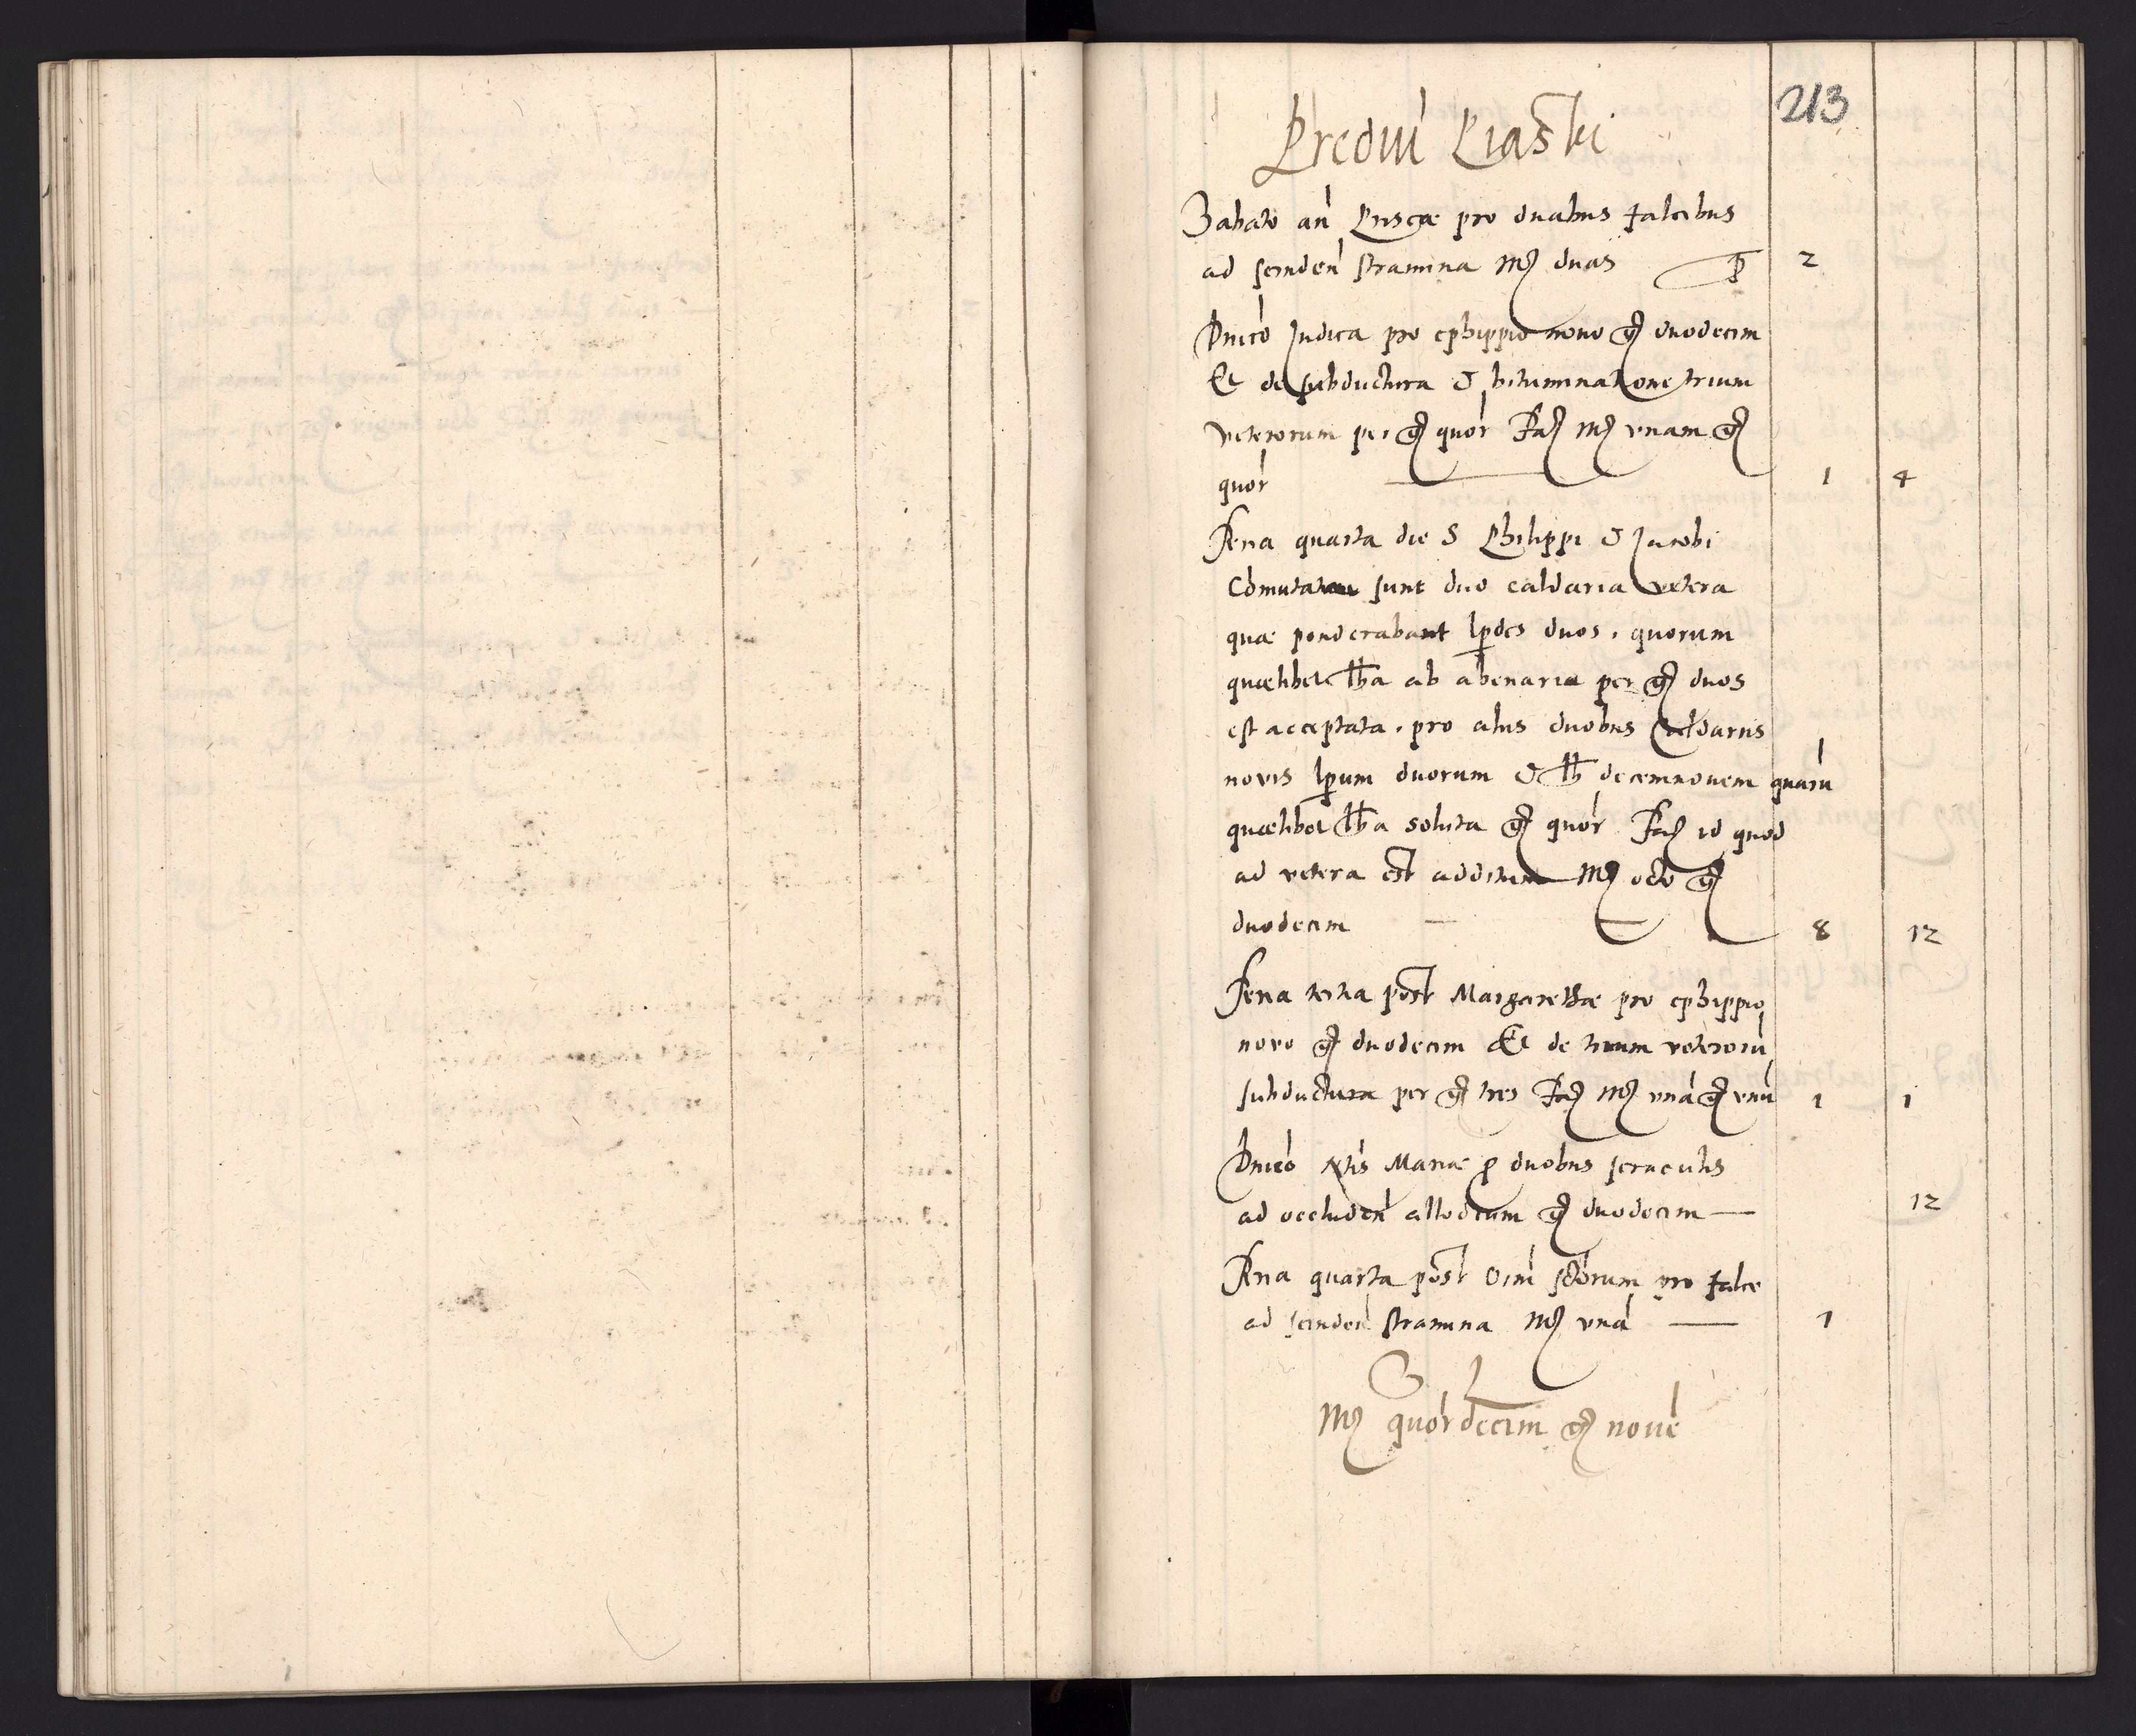 213
Predii Piaski
Sabato an Priscæ pro duabus falcibus
ad scinden stramina mc duas 2
Dnico Judica pro ephippio nouo g duodecim
Et de subductura & bituminatione trium
veterorum per g quor Fac mc vnam g
quor 1 4
Feria quarta die S Philippi & Jacobi
Comutata sunt duo caldaria vetera
quæ ponderabant lpdes duos, quorum
quælibet lba ab ahenaria per g duos
est acceptata, pro alys duobus Caldarys
novis lpdum duorum & lb decemnovem quaru
quælibet lba soluta g quor Fac id quod
ad vetera est additum mc octo g
duodecim 8 12
Feria tertia post Margarethæ pro ephippio
novo g duodecim Et de trium veteroru
subductura per g tres Fac mc vna g vnu 1 1
Dnico Ntis Mariæ p duobus seraculis
ad occluden allodium g duodecim 12
Feria quarta post Oim sctorum pro falce
ad scinden stramina mc vna 1
mc quordecim g noue